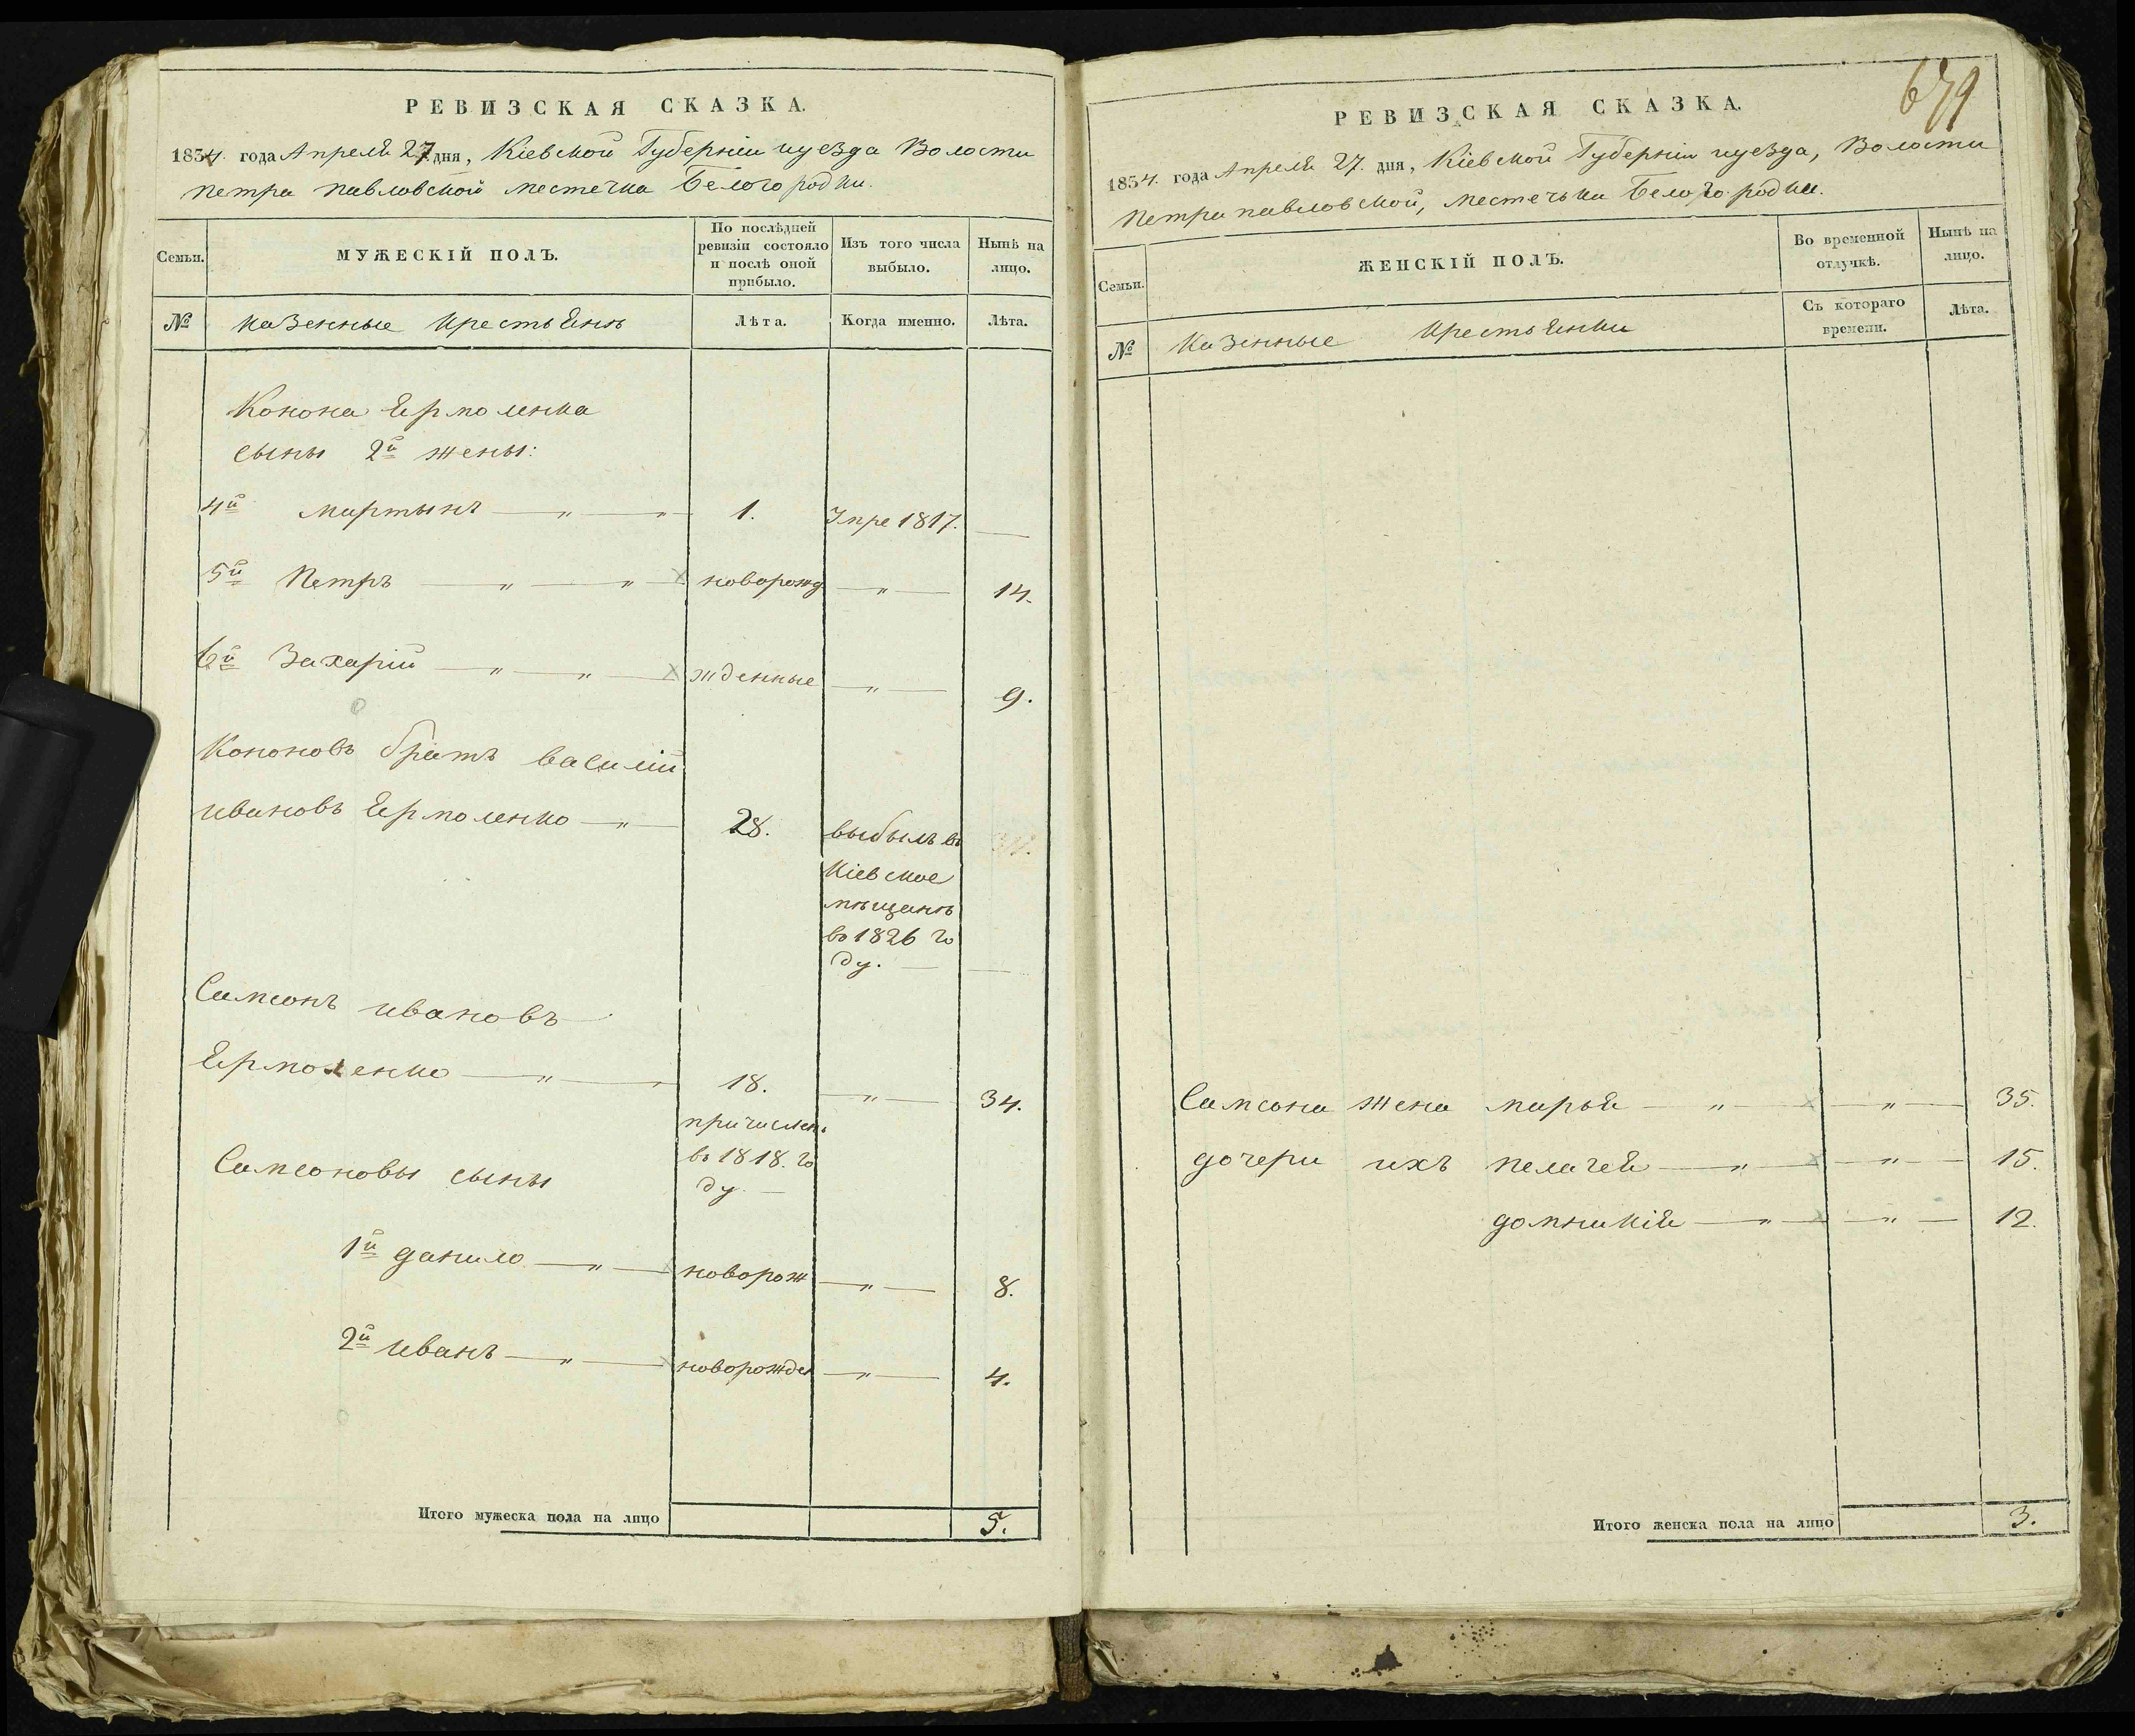 РЕВИЗСКАЯ СКАЗКА.
1834. года Апреля 27 дня, Кіевской Губерніи и уезда Волости
петра павловской местечка Белогородки.
Семьи.
МУЖЕСКІЙ ПОЛЪ.
По послѣдней ревизіи состояло и послѣ оной прибыло.
Изъ того числа выбыло.
Нынѣ на лицо.
№
казенные крестьяне
Лѣта.
Когда именно.
Лѣта.
Конона Ермоленка
сыны 2й жены:
4й мартынъ — " — " — 1. Умре 1817. —
5й Петръ — " — " — новорожд — " — 14.
6й Захарій — " — " — жденные — " — 9.
Кононовъ братъ василій
ивановъ Ермоленко — " — 28. выбылъ въ
Кіевское
мѣщанѣ
въ 1826 го
ду. — —
Самсонъ ивановъ
Ермоленко — " — 18. — " — 34.
причислен.
въ 1818. го
ду. —
Самсоновы сыны
1й данило — " — новорож — " — 8.
2й иванъ — " — новорожден — " — 4.
Итого мужеска пола на лицо 5.
679
РЕВИЗСКАЯ СКАЗКА.
1834. года Апреля 27. дня, Кіевской Губерніи и уезда, Волости
Петра павловской, местечька Белогородки.
Семьи.
ЖЕНСКІЙ ПОЛЪ.
Во временной отлучкѣ.
Нынѣ на лицо.
№
Казенные крестьянки
Съ котораго времени.
Лѣта.
Самсона жена марья — " — " — 35.
дочери ихъ пелагея — " — " — 15.
домникія — " — " — 12.
Итого женска пола на лицо 3.